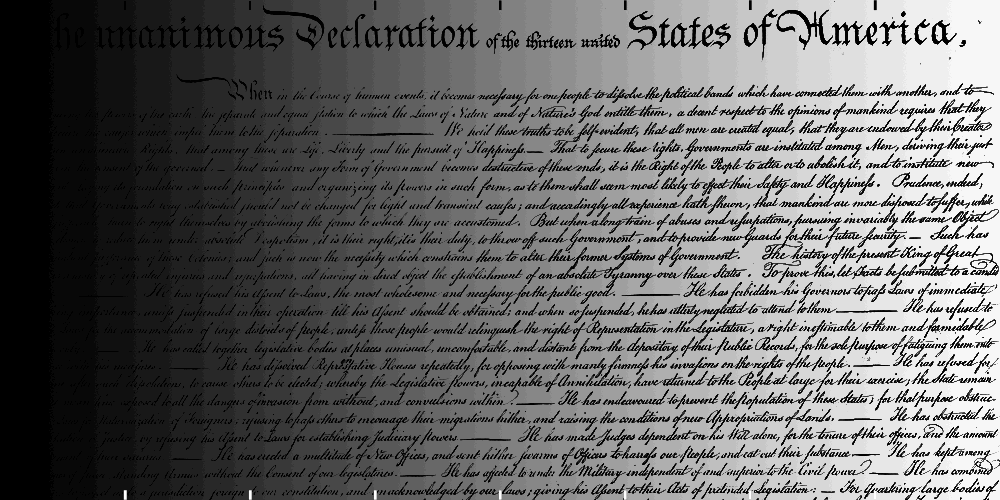 the unanimous Declaration of the thirteen united States of America,
When in the Course of human events, it becomes necessary for one people to dissolve the political bands which have connected them with another, and to
the separate and equal station to which the Laws of Nature and of Nature's God entitle them, a decent respect to the opinions of mankind requires that they
which impel them to the separation. We hold these truths to be self-evident, that all men are created equal, that they are endowed by their Creator
Rights, that among these are Life, Liberty and the pursuit of Happiness. — That to secure these rights, Governments are instituted among Men, deriving their just
of the governed, — That whenever any Form of Government becomes destructive of these ends, it is the Right of the People to alter or to abolish it, and to institute new
foundation on such principles and organizing its powers in such form, as to them shall seem most likely to effect their Safety and Happiness. Prudence, indeed,
established should not be changed for light and transient causes; and accordingly all experience hath shewn, that mankind are more disposed to suffer, while
to right themselves by abolishing the forms to which they are accustomed. But when a long train of abuses and usurpations, pursuing invariably the same Object
them under absolute Despotism, it is their right, it is their duty, to throw off such Government, and to provide new Guards for their future security. — Such has
of these Colonies; and such is now the necessity which constrains them to alter their former Systems of Government. The history of the present King of Great
injuries and usurpations, all having in direct object the establishment of an absolute Tyranny over these States. To prove this, let Facts be submitted to a candid
He has refused his Assent to Laws, the most wholesome and necessary for the public good. He has forbidden his Governors to pass Laws of immediate
unless suspended in their operation till his Assent should be obtained; and when so suspended, he has utterly neglected to attend to them. He has refused to
accommodation of large districts of people, unless those people would relinquish the right of Representation in the Legislature, a right inestimable to them and formidable
He has called together legislative bodies at places unusual, uncomfortable, and distant from the depository of their Public Records, for the sole purpose of fatiguing them into
He has dissolved Representative Houses repeatedly, for opposing with manly firmness his invasions on the rights of the people. He has refused for
such dissolutions, to cause others to be elected; whereby the Legislative powers, incapable of Annihilation, have returned to the People at large for their exercise; the State remain
exposed to all the dangers of invasion from without, and convulsions within. He has endeavoured to prevent the population of these States; for that purpose obstruc
Naturalization of Foreigners; refusing to pass others to encourage their migrations hither, and raising the conditions of new Appropriations of Lands. He has obstructed the
Justice, by refusing his Assent to Laws for establishing Judiciary powers. He has made Judges dependent on his Will alone, for the tenure of their offices, and the amount
salaries. He has erected a multitude of New Offices, and sent hither swarms of Officers to harass our people, and eat out their substance. He has kept among
Standing Armies without the Consent of our legislatures. He has affected to render the Military independent of and superior to the Civil power. He has combined
jurisdiction foreign to our constitution, and unacknowledged by our laws; giving his Assent to their Acts of pretended Legislation: — For Quartering large bodies of